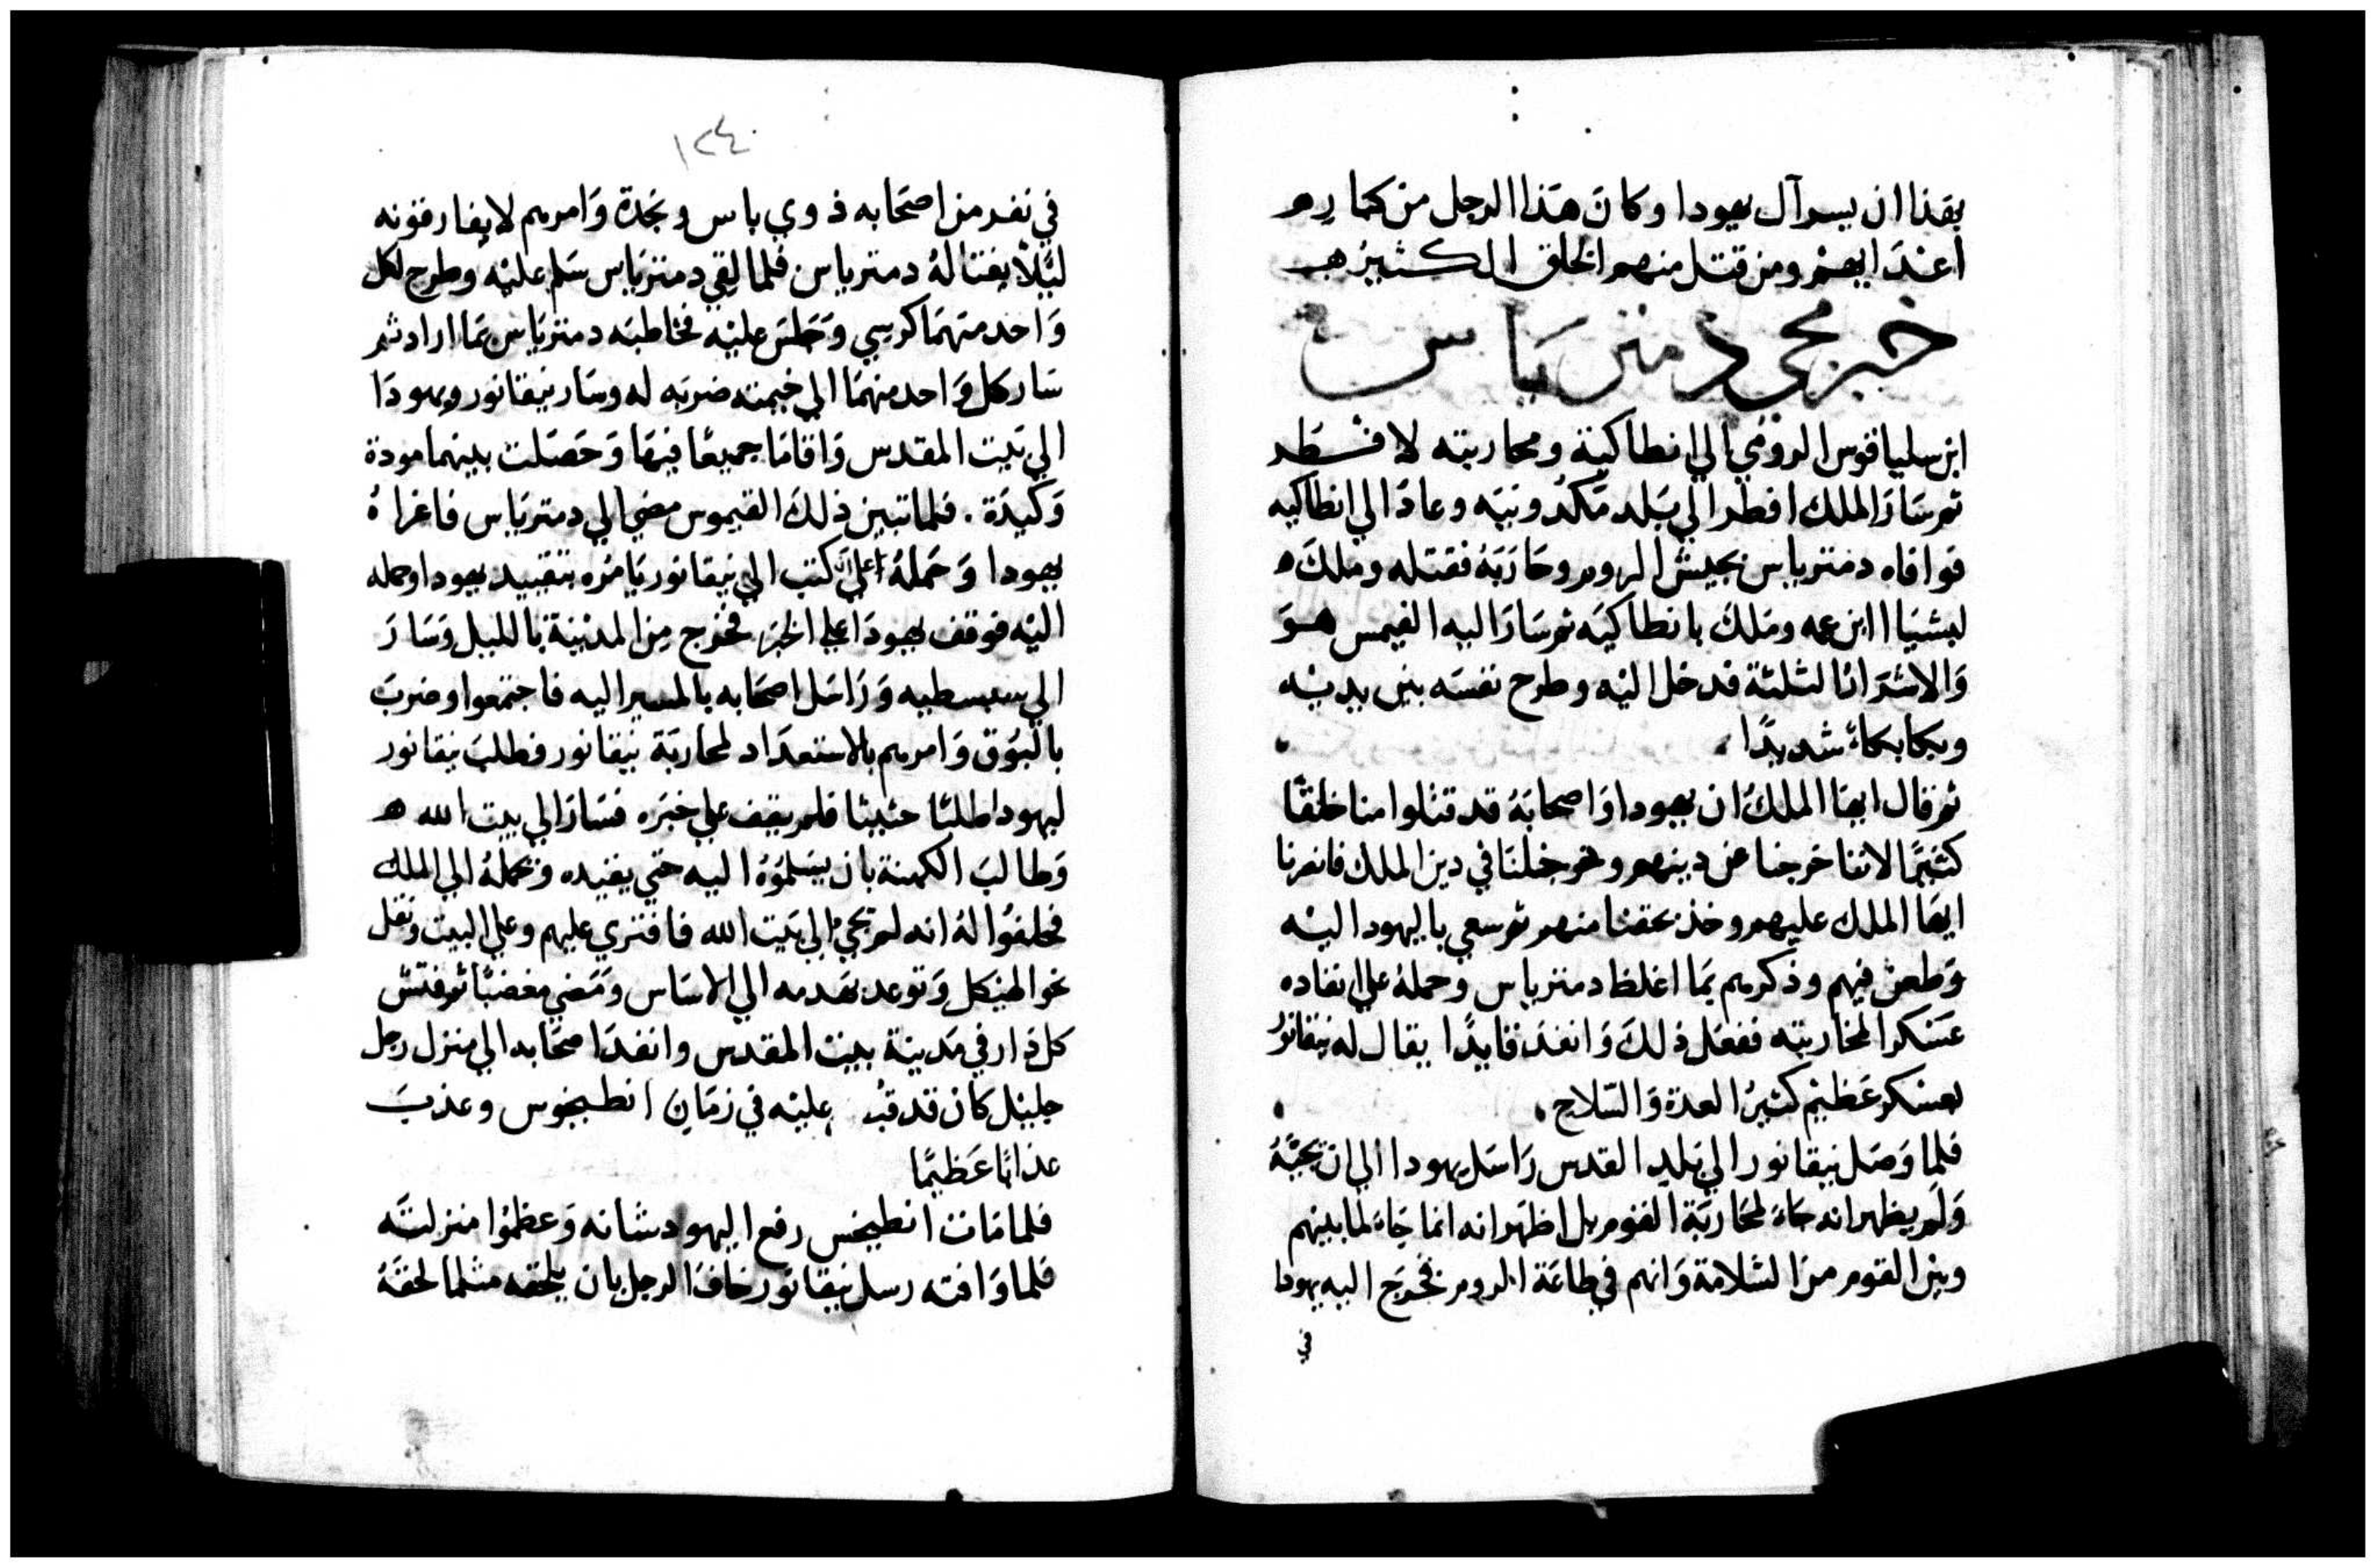 بقذا ان يسرآل يهودا وكان هذا الرجل من كبار
اعدايهم ومن قتل منهم الخلق الكثير
خبر مجي دمتر ياس
ابن سلياقوس الرومي الي انطاكية ومحاربته لا فسطر
ثم سار الملك افطر الي بلد مكدونيه وعاد الي انطاكيه
فوافاه دمترياس بجيش الروم وحاربه فقتله وملك
ليشيا ابن عمه وملك بانطاكيه ثم سار اليه القيمس هو
والاشرار الثلثة فدخل اليه وطرح نفسه بين يديه
وبكا بكاءً شديدًا
ثم قال ايها الملك ان يهودا واصحابه قد قتلوا منا خلقًا
كثيرًا لاننا خرجنا عن دينهم ودخلنا في دين الملك فانصرنا
ايها الملك عليهم وخذ بحقنا منهم ثم سعي باليهود اليه
وطعن فيهم وذكرهم بما اغلظ دمترياس وحمله علي انفاده
عسكرا لمحاربته ففعل ذلك وانفد قايدًا يقال له نيقانور
بعسكر عظيم كثير العدة والسلاح
فلما وصل نيقانور الي بلد القدس راسل يهودا الي ان يجيه
ولم يظهر انه جاء لمحاربة القوم بل اظهر انه انما جاء لما بينهم
وبين القوم من السلامة وانهم في طاعة الروم فخرج اليه يهودا
في
١٢٤
في نفر من اصحابه ذوي باس ونجدة وامرهم لا يفارقونه
ليلًا يغتاله دمترياس فلما لقي دمترياس سلم عليه وطرح لكل
واحد منهما كرسي وجلس عليه فخاطبه دمترياس بما اراد ثم
سار كل واحد منهما الي خيمته ضربه له وسار نيقانور ويهودا
الي بيت المقدس واقاما جميعًا فيها وحصلت بينهما مودة
وكيدة . فلما تبين ذلك القيموس مضي الي دمترياس فاغراه
بيهودا وحمله علي ان كتب الي نيقانور يامره بتقييد يهودا وحمله
اليه فوقف يهودا علي الخبر فخرج من المدينة بالليل وسار
الي سبسطيه وراسل اصحابه بالمسير اليه فاجتمعوا وضرب
بالبوق وامرهم بالاستعداد لمحاربة نيقانور فطلب نيقانور
ليهودا طلبًا حثيثا فلم يقف علي خبره فسار الي بيت الله
وطالب الكهنة بان يسلموه اليه حتي يقيده وبحمله الي الملك
فحلفوا له انه لم يجي الي بيت الله فافتري عليهم وعلي البيت وتفل
نحو الهيكل وتوعد بهدمه الي الاساس ومضي مغضبًا ثم فتش
كل دار في مدينة بيت المقدس وانفد اصحابه الي منزل رجل
جليل كان قد عليه في زمان انطيخوس وعذب
عذابًا عظيمًا
فلما مات انطيخس رفع اليهود شانه وعظموا منزلته
فلما وافته رسل نيقانور خاف الرجل بان يلحقه مثلما لحقه